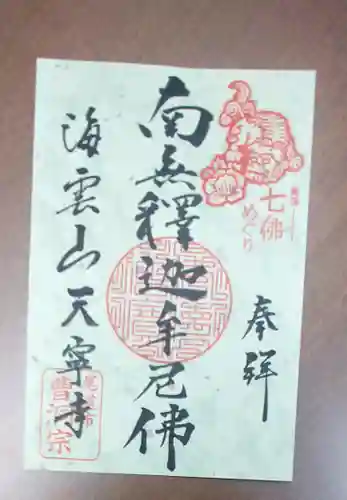 七佛
めぐり
奉拝
南無釋迦牟尼佛
海雲山天寧寺
曹洞宗